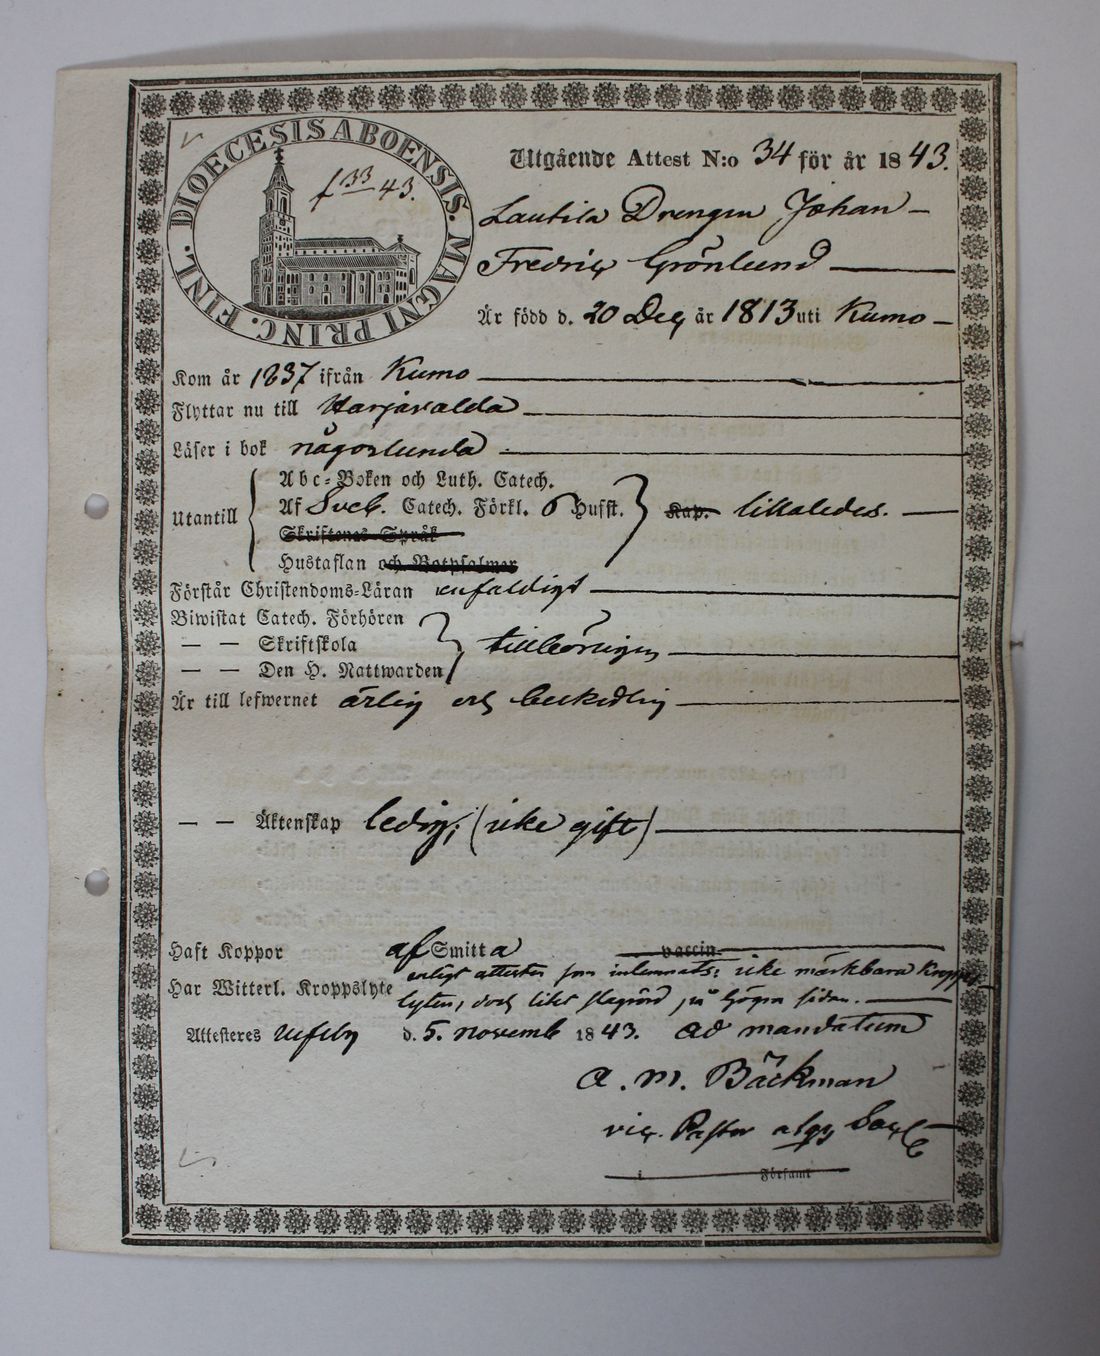 DIOECESIS ABOENSIS. MAGNI PRINC. FINL.
f 133 43.
Utgående Attest N:o 34 för år 1843.
Lautila Drengen Johan
Fredric Grönlund
Är född d. 20 Dec år 1813 uti Kumo
Kom år 1837 ifrån Kumo
Flyttar nu till Harjavalda
Läser i bok någorlunda
Abc-Boken och Luth. Catech.
Utantill Af Sveb. Catech. Förkl. 6 Hufst. Kap. likaledes.
Skriftenes Språk
Hustaflan och Botpsalmer
Förstår Christendoms-Läran enfaldigt
Biwistat Catech. Förhören
— — Skriftskola tillbörligen
— — Den H. Nattwarden
Är till lefwernet ärlig och beskedlig
— — Äktenskap ledig; (icke gift)
Haft Koppor af Smitta vaccin.
enligt attesten som inlemnats: icke märkbara Kropps
Har Witterl. Kroppslyte
lyten, dock litet på högra sidan.
Attesteres Ulfsby d. 5. novemb 1843. ad mandatum
A. M. Bäckman
vic. Pastor
i Församl